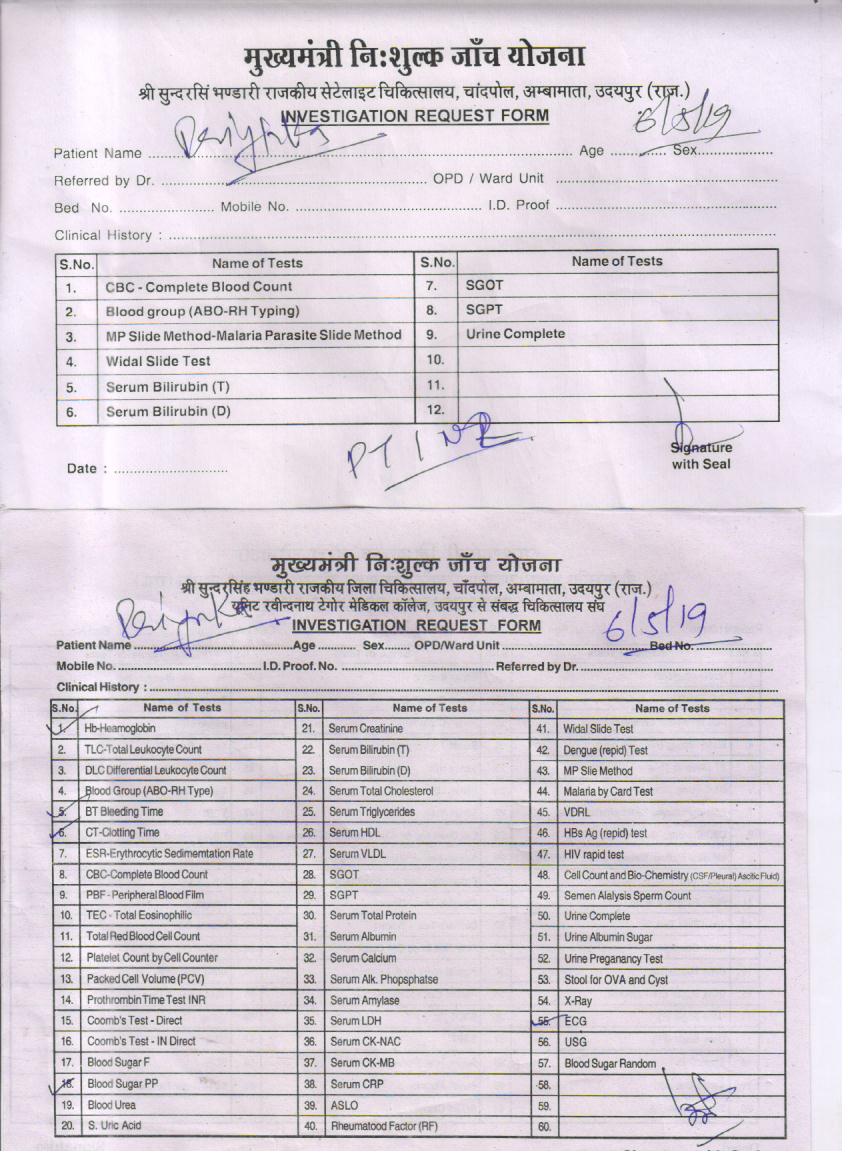 मुख्यमंत्री निःशुल्क जाँच योजना
श्री सुन्दरसिं भण्डारी राजकीय सेटेलाइट चिकित्सालय, चांदपोल, अम्बामाता, उदयपुर (राज.)
INVESTIGATION REQUEST FORM
6/5/19
Patient Name Age Sex
Referred by Dr. OPD / Ward Unit
Bed No. Mobile No. I.D. Proof
Clinical History :
S.No. Name of Tests S.No. Name of Tests
1. CBC - Complete Blood Count 7. SGOT
2. Blood group (ABO-RH Typing) 8. SGPT
3. MP Slide Method-Malaria Parasite Slide Method 9. Urine Complete
4. Widal Slide Test 10.
5. Serum Bilirubin (T) 11.
6. Serum Bilirubin (D) 12.
PT INR
Signature
with Seal
Date :
मुख्यमंत्री निःशुल्क जाँच योजना
श्री सुन्दरसिंह भण्डारी राजकीय जिला चिकित्सालय, चाँदपोल, अम्बामाता, उदयपुर (राज.)
यूनिट रवीन्दनाथ टेगोर मेडिकल कॉलेज, उदयपुर से संबद्ध चिकित्सालय संघ
INVESTIGATION REQUEST FORM
6/5/19
Patient Name Age Sex OPD/Ward Unit Bed No.
Mobile No. I.D.Proof. No. Referred by Dr.
Clinical History :
S.No. Name of Tests S.No. Name of Tests S.No. Name of Tests
1. Hb-Heamoglobin 21. Serum Creatinine 41. Widal Slide Test
2. TLC-Total Leukocyte Count 22. Serum Bilirubin (T) 42. Dengue (repid) Test
3. DLC Differential Leukocyte Count 23. Serum Bilirubin (D) 43. MP Slie Method
4. Blood Group (ABO-RH Type) 24. Serum Total Cholesterol 44. Malaria by Card Test
5. BT Bleeding Time 25. Serum Triglycerides 45. VDRL
6. CT-Clotting Time 26. Serum HDL 46. HBs Ag (repid) test
7. ESR-Erythrocytic Sedimemtation Rate 27. Serum VLDL 47. HIV rapid test
8. CBC-Complete Blood Count 28. SGOT 48. Cell Count and Bio-Chemistry (CSF/Pleural) Ascitic Fluid)
9. PBF - Peripheral Blood Film 29. SGPT 49. Semen Alalysis Sperm Count
10. TEC - Total Eosinophilic 30. Serum Total Protein 50. Urine Complete
11. Total Red Blood Cell Count 31. Serum Albumin 51. Urine Albumin Sugar
12. Platelet Count by Cell Counter 32. Serum Calcium 52. Urine Preganancy Test
13. Packed Cell Volume (PCV) 33. Serum Alk. Phopsphatse 53. Stool for OVA and Cyst
14. Prothrombin Time Test INR 34. Serum Amylase 54. X-Ray
15. Coomb's Test - Direct 35. Serum LDH 55. ECG
16. Coomb's Test - IN Direct 36. Serum CK-NAC 56. USG
17. Blood Sugar F 37. Serum CK-MB 57. Blood Sugar Random
18. Blood Sugar PP 38. Serum CRP 58.
19. Blood Urea 39. ASLO 59.
20. S. Uric Acid 40. Rheumatood Factor (RF) 60.